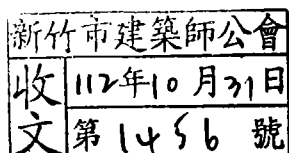 新竹市建築師公會
收文
112年10月31日
第1456號